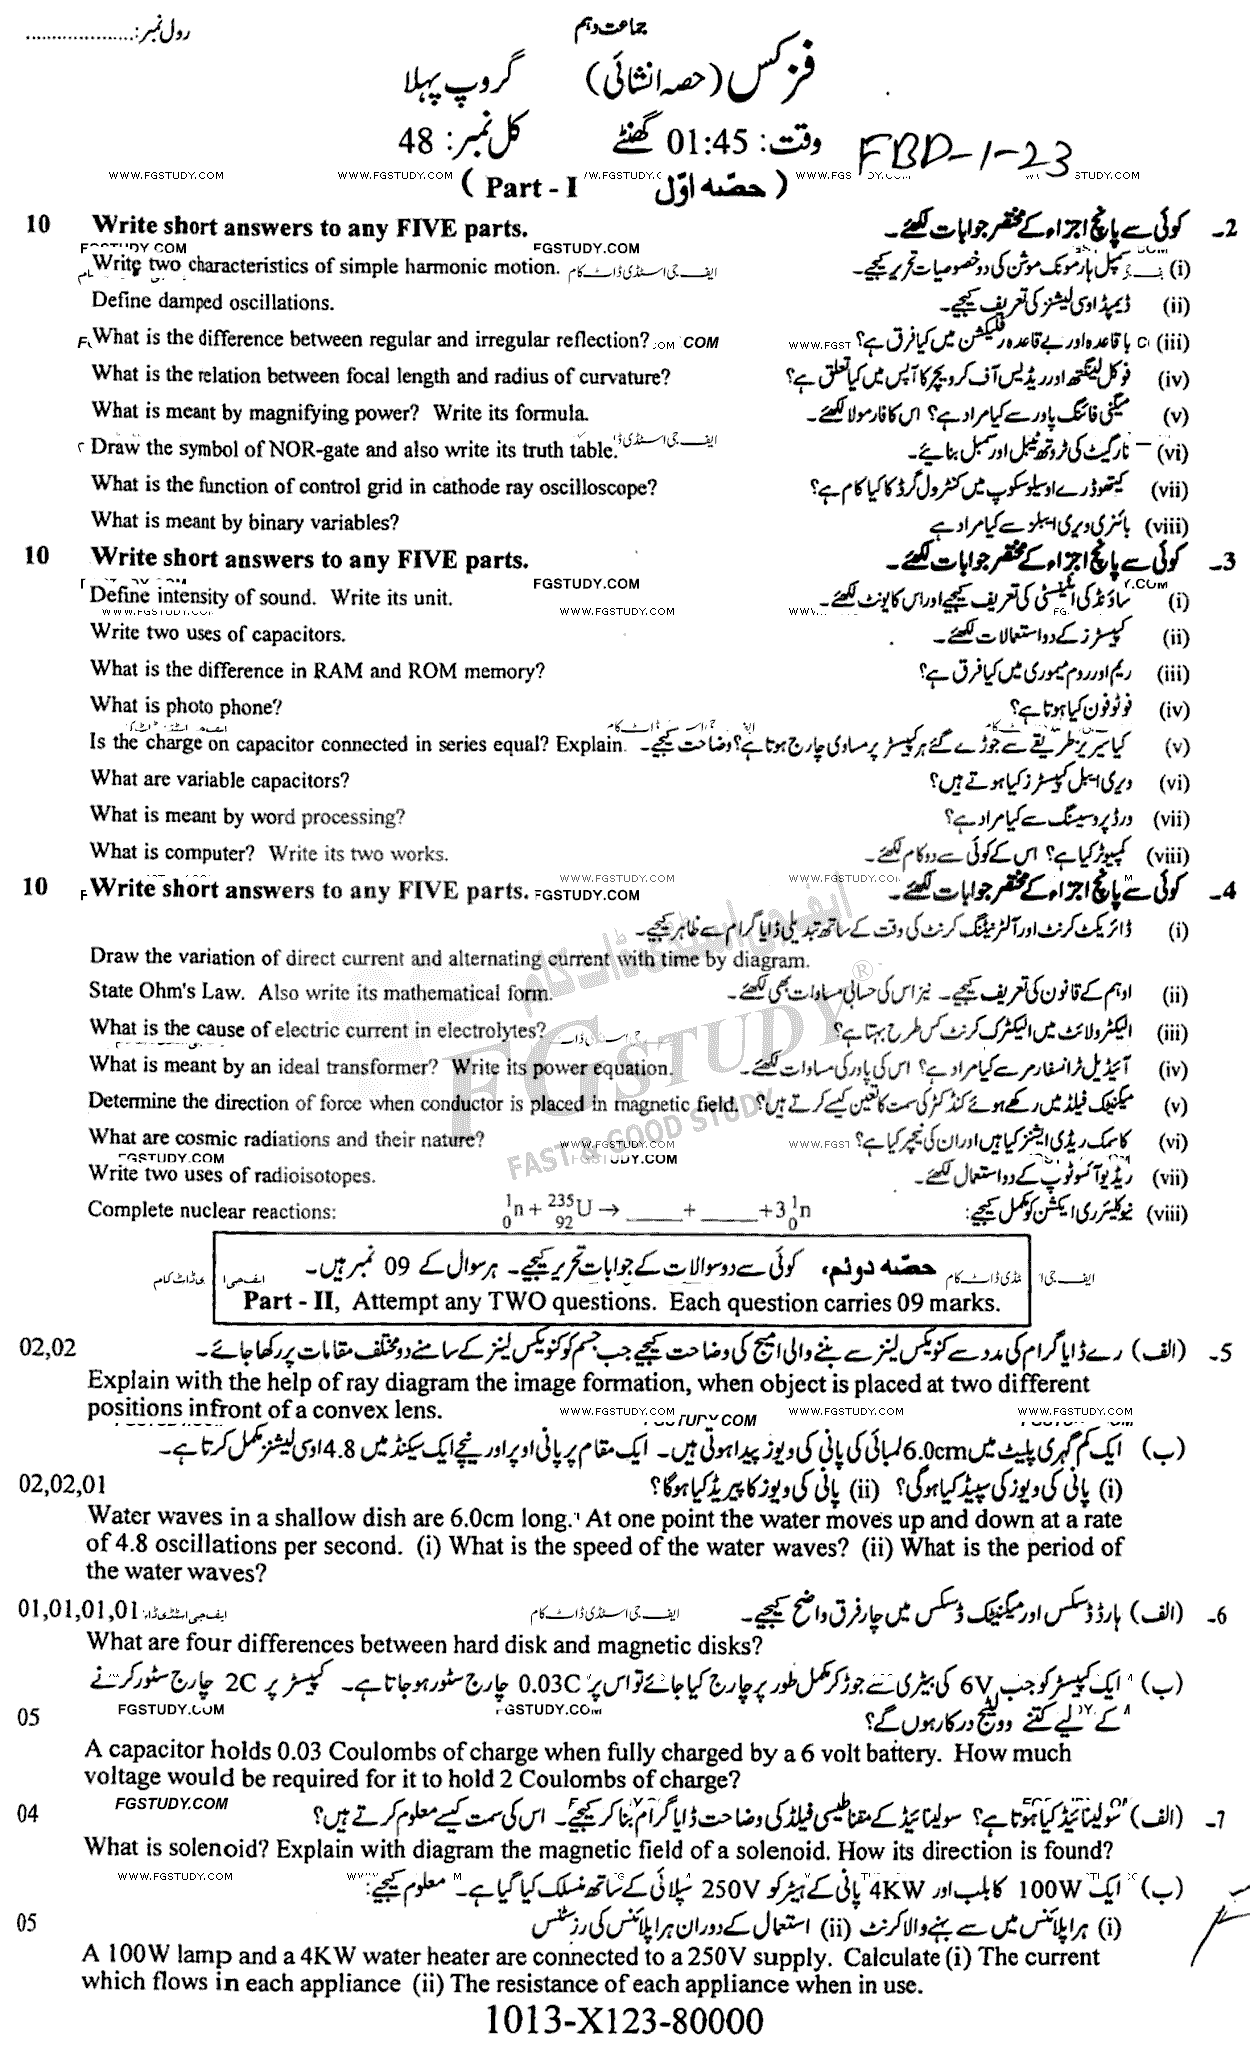 رول نمبر:....................
جماعت دہم
فزکس (حصہ انشائی) گروپ پہلا
وقت: 01:45 گھنٹے کل نمبر: 48
FBD-1-23
WWW.FGSTUDY.COM WWW.FGSTUDY.COM
( Part - I حصّہ اوّل )
10 Write short answers to any FIVE parts. 2۔ کوئی سے پانچ اجزاء کے مختصر جوابات لکھئے۔
FGSTUDY.COM FGSTUDY.COM
Write two characteristics of simple harmonic motion. ایف جی اسٹڈی ڈاٹ کام (i) سمپل ہارمونک موشن کی دو خصوصیات تحریر کیجیے۔
Define damped oscillations. (ii) ڈیمپڈ اوسی لیشنز کی تعریف کیجیے۔
What is the difference between regular and irregular reflection? (iii) باقاعدہ اور بے قاعدہ رفلیکشن میں کیا فرق ہے؟
What is the relation between focal length and radius of curvature? (iv) فوکل لینگتھ اور ریڈیس آف کرویچر کا آپس میں کیا تعلق ہے؟
What is meant by magnifying power? Write its formula. (v) میگنی فائنگ پاور سے کیا مراد ہے؟ اس کا فارمولا لکھئے۔
Draw the symbol of NOR-gate and also write its truth table. (vi) نارگیٹ کی ٹروتھ ٹیبل اور سمبل بنائیے۔
What is the function of control grid in cathode ray oscilloscope? (vii) کیتھوڈ رے اوسیلوسکوپ میں کنٹرول گرڈ کا کیا کام ہے؟
What is meant by binary variables? (viii) بائنری ویری ایبلز سے کیا مراد ہے
10 Write short answers to any FIVE parts. 3۔ کوئی سے پانچ اجزاء کے مختصر جوابات لکھئے۔
FGSTUDY.COM
Define intensity of sound. Write its unit. (i) ساؤنڈ کی انٹینسٹی کی تعریف کیجیے اور اس کا یونٹ لکھئے۔
WWW.FGSTUDY.COM
Write two uses of capacitors. (ii) کپیسٹرز کے دو استعمالات لکھئے۔
What is the difference in RAM and ROM memory? (iii) ریم اور روم میموری میں کیا فرق ہے؟
What is photo phone? (iv) فوٹوفون کیا ہوتا ہے؟
Is the charge on capacitor connected in series equal? Explain. (v) کیا سیریز طریقے سے جوڑے گئے ہر کپیسٹر پر مساوی چارج ہوتا ہے؟ وضاحت کیجیے۔
What are variable capacitors? (vi) ویری ایبل کپیسٹرز کیا ہوتے ہیں؟
What is meant by word processing? (vii) ورڈ پروسیسنگ سے کیا مراد ہے؟
What is computer? Write its two works. (viii) کمپیوٹر کیا ہے؟ اس کے کوئی سے دو کام لکھئے۔
WWW.FGSTUDY.COM
10 Write short answers to any FIVE parts. FGSTUDY.COM 4۔ کوئی سے پانچ اجزاء کے مختصر جوابات لکھئے۔
(i) ڈائریکٹ کرنٹ اور آلٹرنیٹنگ کرنٹ کی وقت کے ساتھ تبدیلی ڈایا گرام سے ظاہر کیجیے۔
Draw the variation of direct current and alternating current with time by diagram.
State Ohm's Law. Also write its mathematical form. (ii) اوہم کے قانون کی تعریف کیجیے۔ نیز اس کی حسابی مساوات بھی لکھئے۔
What is the cause of electric current in electrolytes? (iii) الیکٹرولائٹ میں الیکٹرک کرنٹ کس طرح بہتا ہے؟
What is meant by an ideal transformer? Write its power equation. (iv) آئیڈیل ٹرانسفارمر سے کیا مراد ہے؟ اس کی پاور کی مساوات لکھئے۔
Determine the direction of force when conductor is placed in magnetic field. (v) میگنیٹک فیلڈ میں رکھے ہوئے کنڈکٹر کی سمت کا تعین کیسے کرتے ہیں؟
What are cosmic radiations and their nature? (vi) کاسمک ریڈی ایشنز کیا ہیں اور ان کی نیچر کیا ہے؟
FGSTUDY.COM
Write two uses of radioisotopes. (vii) ریڈیو آئسوٹوپ کے دو استعمال لکھئے۔
Complete nuclear reactions: ¹₀n + ²³⁵₉₂U → _____ + _____ +3 ¹₀n (viii) نیوکلیئر ری ایکشن کو مکمل کیجیے:
FGSTUDY
FAST & GOOD STUDY
حصّہ دوئم، کوئی سے دو سوالات کے جوابات تحریر کیجیے۔ ہر سوال کے 09 نمبر ہیں۔
Part - II, Attempt any TWO questions. Each question carries 09 marks.
02,02 5۔ (الف) رے ڈایا گرام کی مدد سے کنویکس لینز سے بننے والی امیج کی وضاحت کیجیے جب جسم کو کنویکس لینز کے سامنے دو مختلف مقامات پر رکھا جائے۔
Explain with the help of ray diagram the image formation, when object is placed at two different
positions infront of a convex lens.
WWW.FGSTUDY.COM FGSTUDY.COM WWW.FGSTUDY.COM WWW.FGSTUDY.COM
(ب) ایک کم گہری پلیٹ میں 6.0cm لمبائی کی پانی کی ویوز پیدا ہوتی ہیں۔ ایک مقام پر پانی اوپر اور نیچے ایک سیکنڈ میں 4.8 اوسی لیشنز مکمل کرتا ہے۔
02,02,01 (i) پانی کی ویوز کی سپیڈ کیا ہوگی؟ (ii) پانی کی ویوز کا پیریڈ کیا ہوگا؟
Water waves in a shallow dish are 6.0cm long. At one point the water moves up and down at a rate
of 4.8 oscillations per second. (i) What is the speed of the water waves? (ii) What is the period of
the water waves?
01,01,01,01 6۔ (الف) ہارڈ ڈسکس اور میگنیٹک ڈسکس میں چار فرق واضح کیجیے۔
What are four differences between hard disk and magnetic disks?
(ب) ایک کپیسٹر کو جب 6V کی بیٹری سے جوڑ کر مکمل طور پر چارج کیا جائے تو اس پر 0.03C چارج سٹور ہو جاتا ہے۔ کپیسٹر پر 2C چارج سٹور کرنے
05 کے لیے کتنے وولٹیج درکار ہوں گے؟
A capacitor holds 0.03 Coulombs of charge when fully charged by a 6 volt battery. How much
voltage would be required for it to hold 2 Coulombs of charge?
FGSTUDY.COM
04 7۔ (الف) سولینائیڈ کیا ہوتا ہے؟ سولینائیڈ کے مقناطیسی فیلڈ کی وضاحت ڈایا گرام بنا کر کیجیے۔ اس کی سمت کیسے معلوم کرتے ہیں؟
What is solenoid? Explain with diagram the magnetic field of a solenoid. How its direction is found?
WWW.FGSTUDY.COM
(ب) ایک 100W کا بلب اور 4KW پانی کے ہیٹر کو 250V سپلائی کے ساتھ منسلک کیا گیا ہے۔ معلوم کیجیے:
05 (i) ہر اپلائنس میں سے بہنے والا کرنٹ (ii) استعمال کے دوران ہر اپلائنس کی رزسٹنس
A 100W lamp and a 4KW water heater are connected to a 250V supply. Calculate (i) The current
which flows in each appliance (ii) The resistance of each appliance when in use.
1013-X123-80000